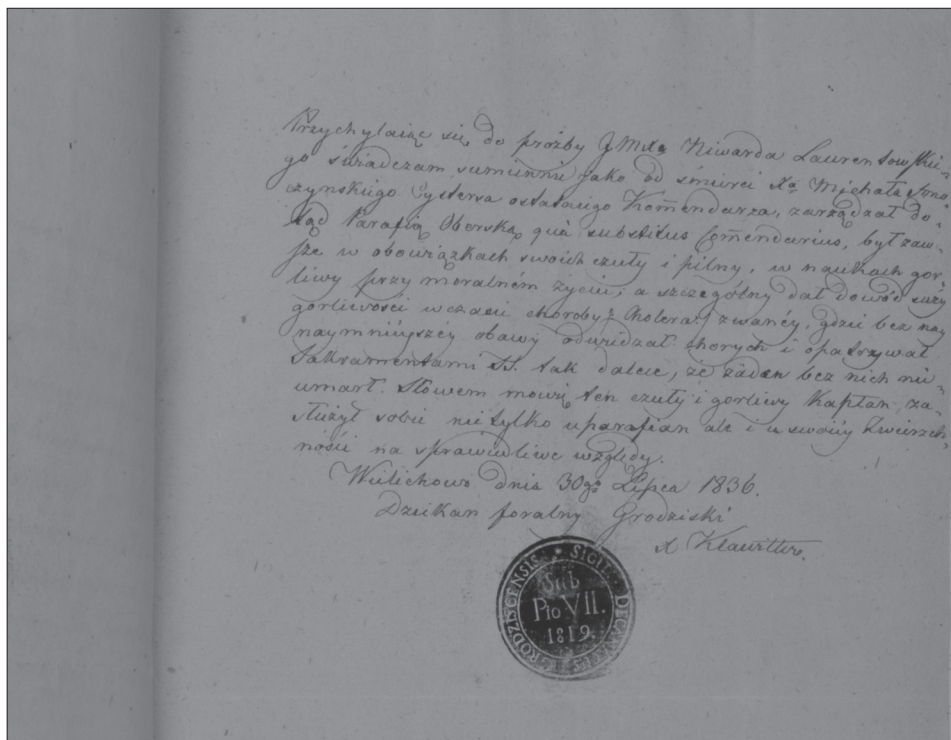 Przychylaiąc się do proźby JmXa Niwarda Laurentowsku-
go świadczam sumiennie jako od śmierci Xa Michała
czynskiego Cystersa ostatniego Kom̃endarza, zarządzał do-
tąd Parafią Oborską quà substitus Com̃endarius, był zaw-
sze w obowiązkach swoich czuły i pilny, w naukach gor-
liwy przy moralném życiu; a szczególny dał dowód swéy
gorliwości w czasie choroby Cholera zwanéy, gdzie bez nay
naymnieyszéy obawy odwidzał chorych i opatrzywał
Sakramentami SS. tak dalece, że żaden bez nich nie
umarł. Słowem mowię ten czuły i gorliwy Kapłan, za-
służył sobie nie tylko u parafian ale i u swoiéy Zwierzch-
ności na sprawiedliwe względy.
Wielichowo dnia 30go Lipca 1836.
Dziekan foralny Grodziski
X Klawitter.
SIGIL. DECANATUS GRODZISCENSIS
Sub
Pio VII.
1819.